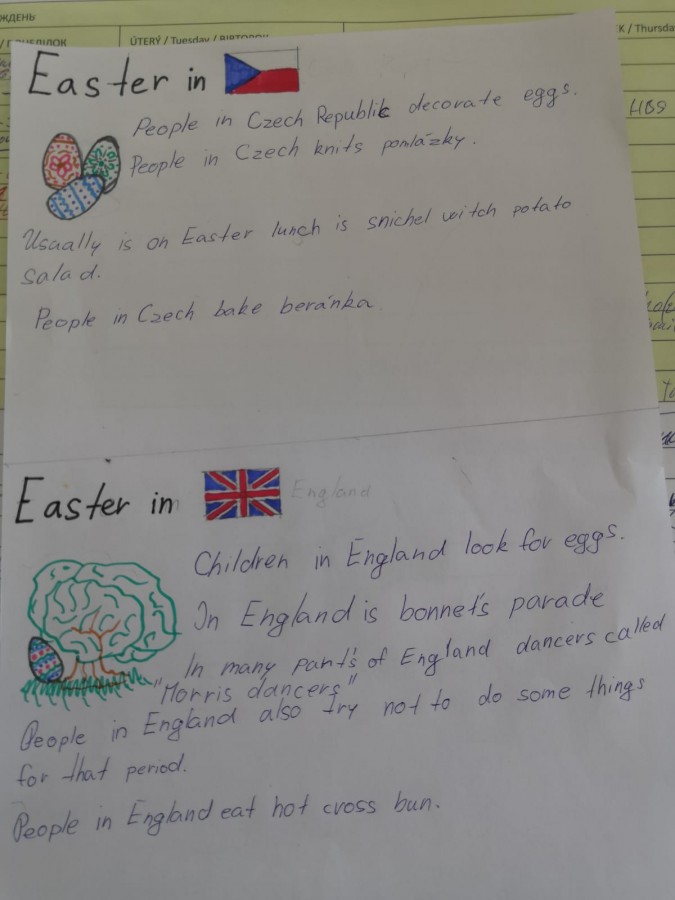 ÚTERÝ / Tuesday / ВІВТОРОК
/ Thursda
HBS
Easter in
People in Czech Republik decorate eggs.
People in Czech knits pomlázky.
Usually is on Easter lunch is snichel witch potato
salad.
People in Czech bake beránka.
Easter in England
Children in England look for eggs.
In England is bonnet's parade
In many part's of England dancers called
"Morris dancers"
People in England also try not to do some things
for that period.
People in England eat hot cross bun.